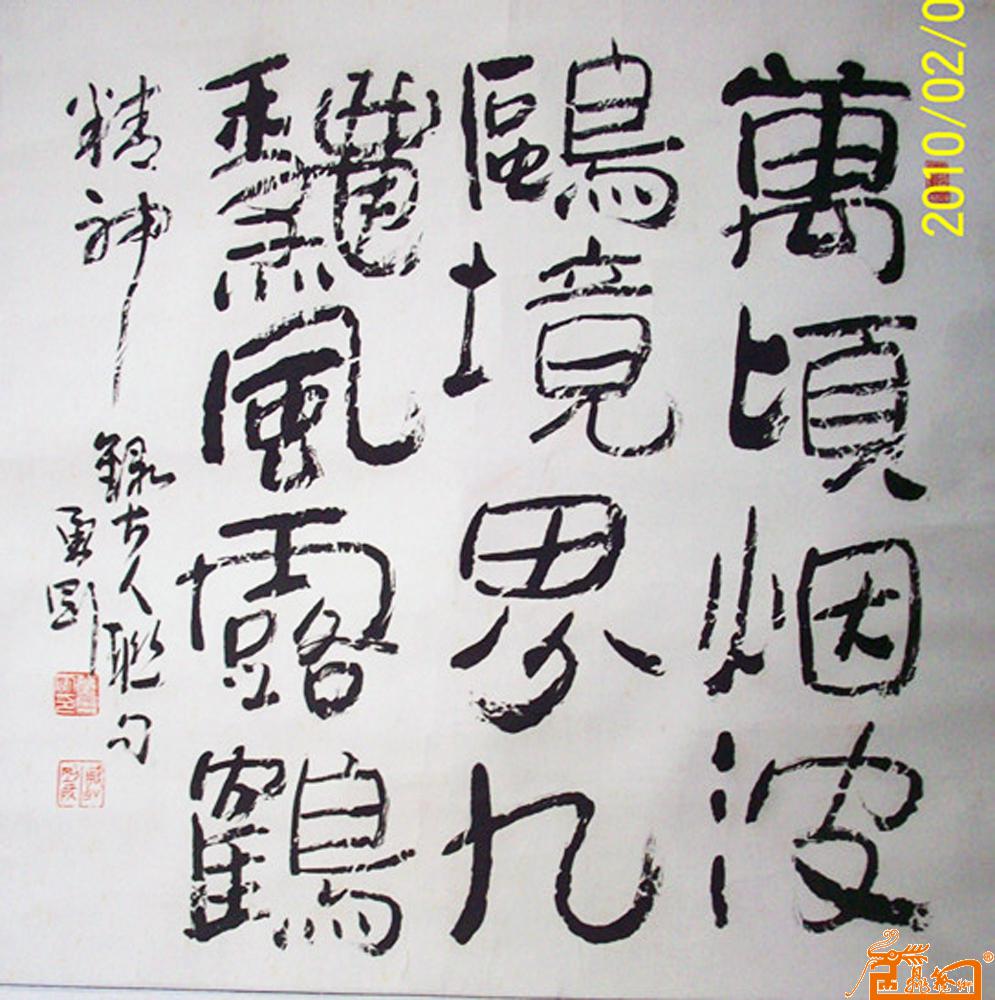 萬頃烟波
鷗境界九
風露鶴
精神
錄古人聯句
勇剛
2010/02/0